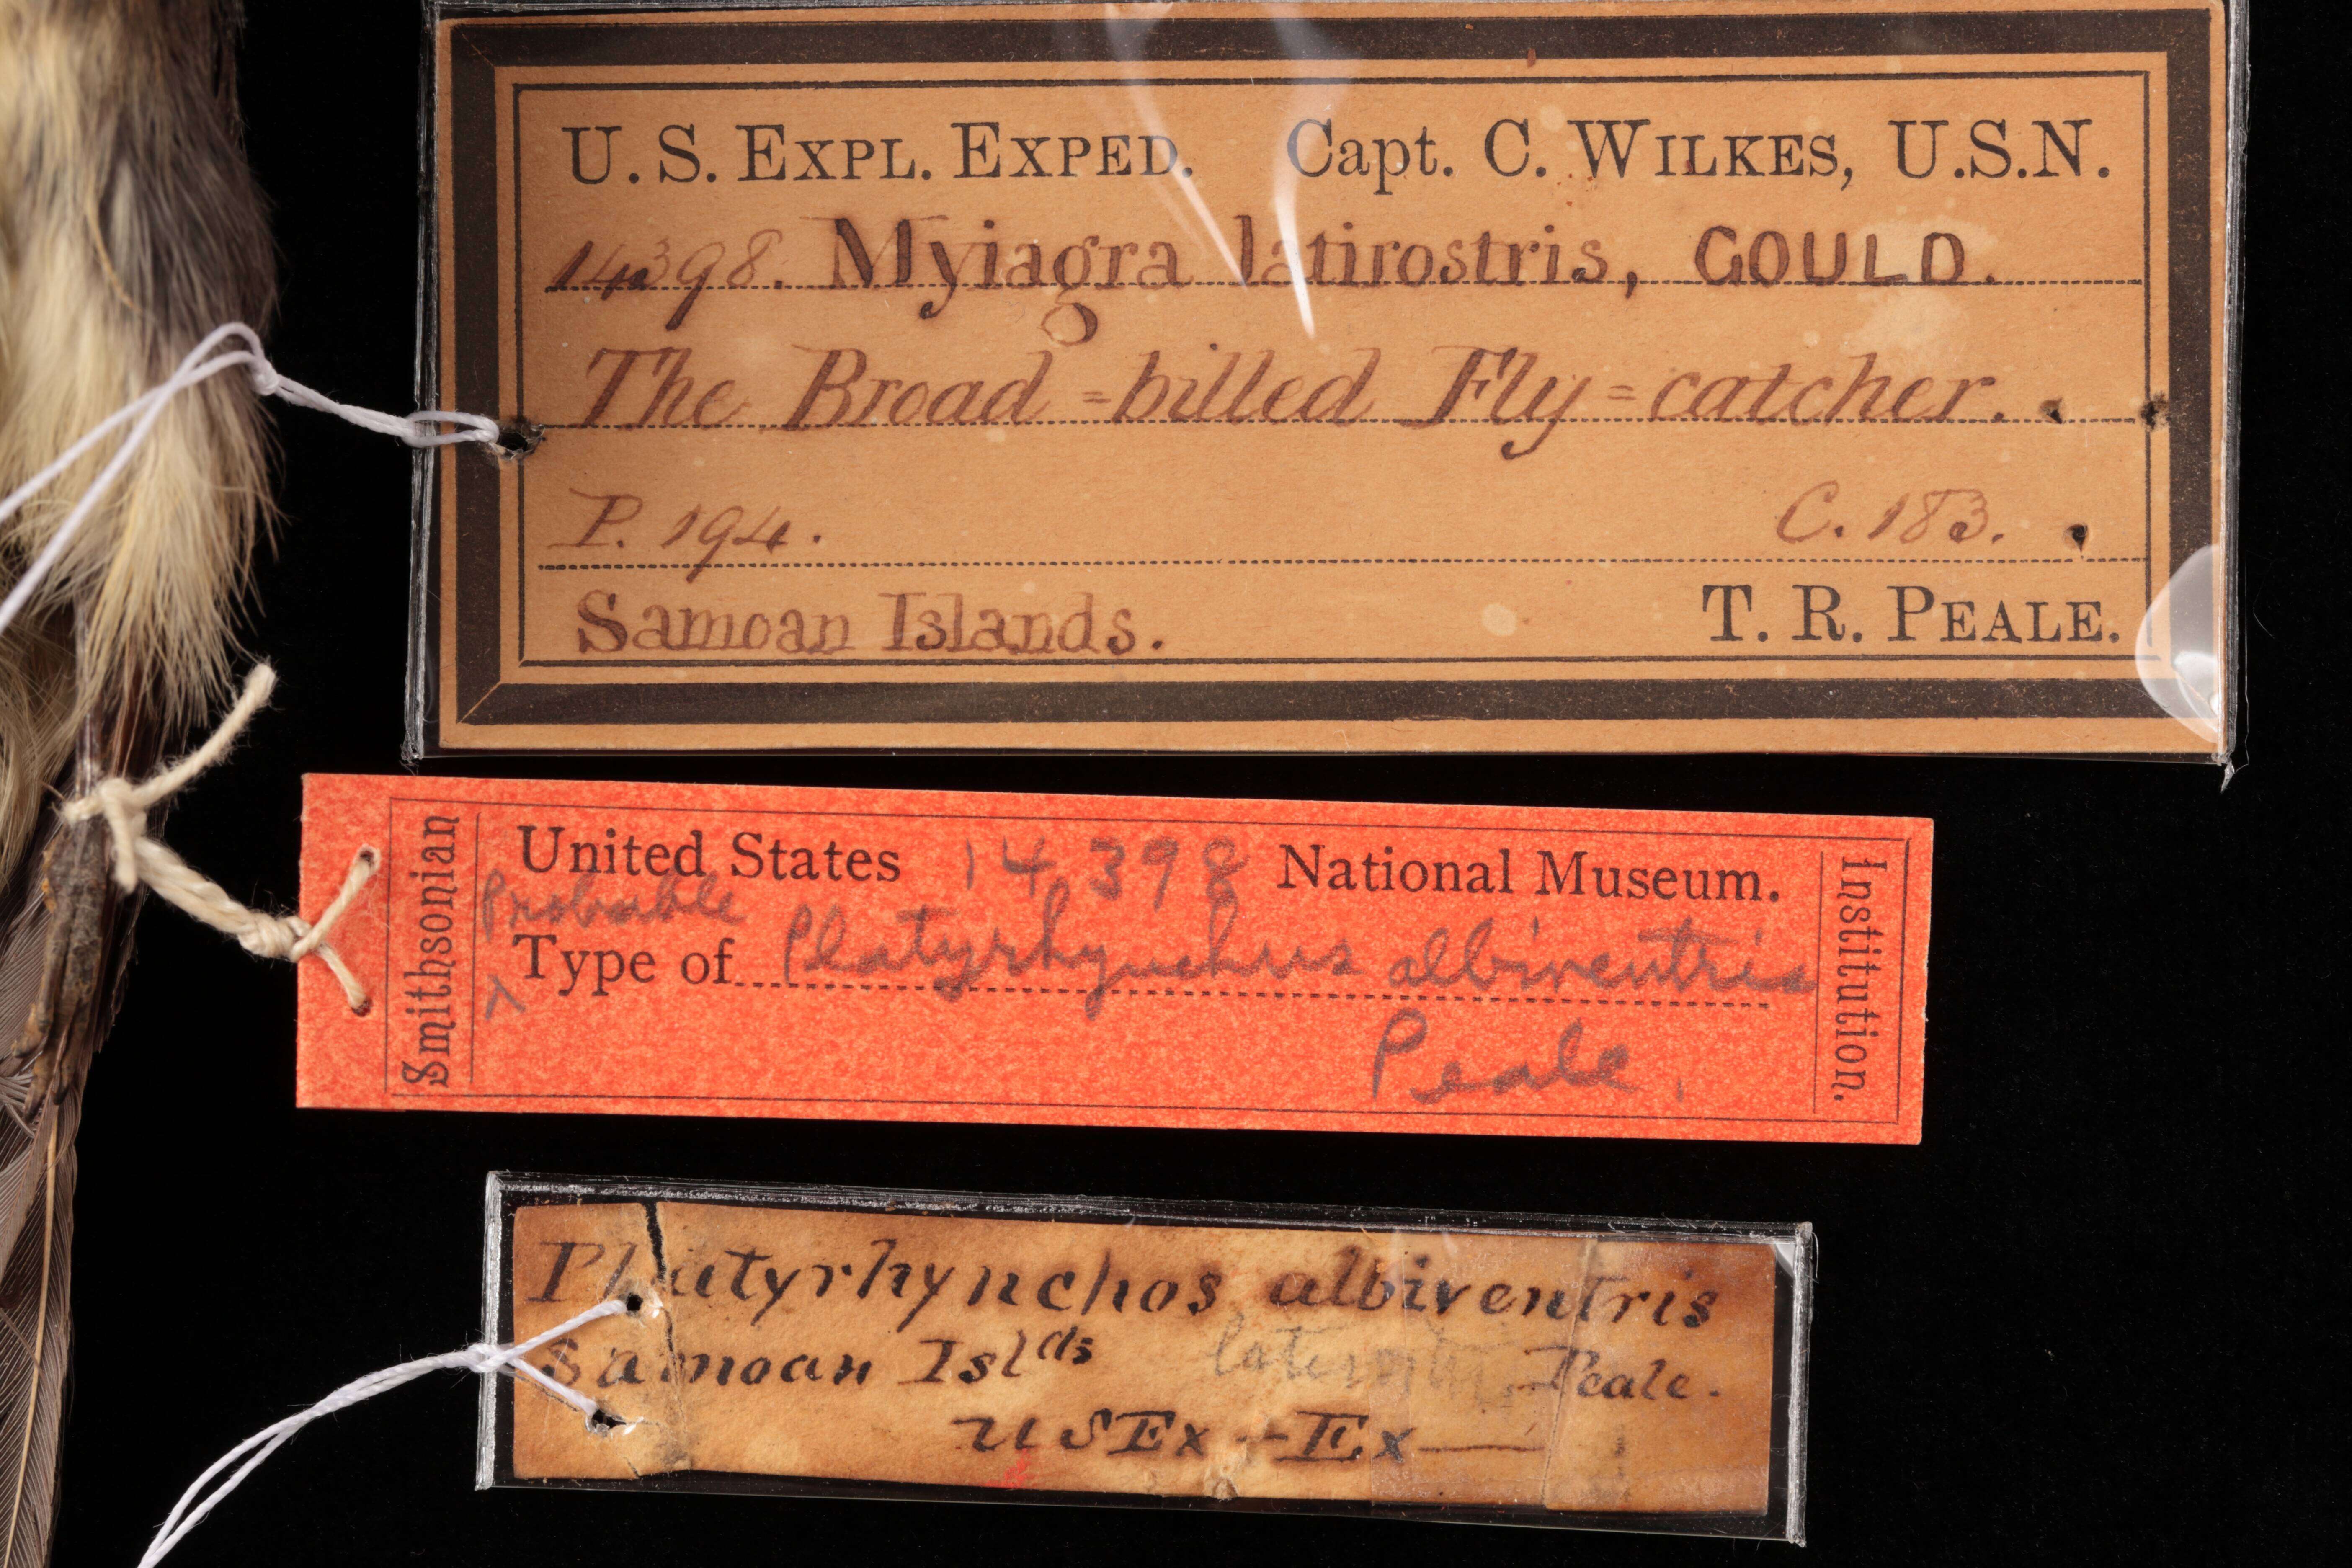 U. S. EXPL. EXPED. Capt. C. WILKES, U.S.N.
14398. Myiagra latirostris, GOULD.
The Broad=billed Fly=catcher.
P. 194. C. 183.
Samoan Islands. T. R. PEALE.
Smithsonian
United States 14,398 National Museum.
Probable
^ Type of Platyrhynchus albiventris
Peale.
Institution.
Platyrhynchos albiventris
Samoan Islds Peale.
USEx+Ex